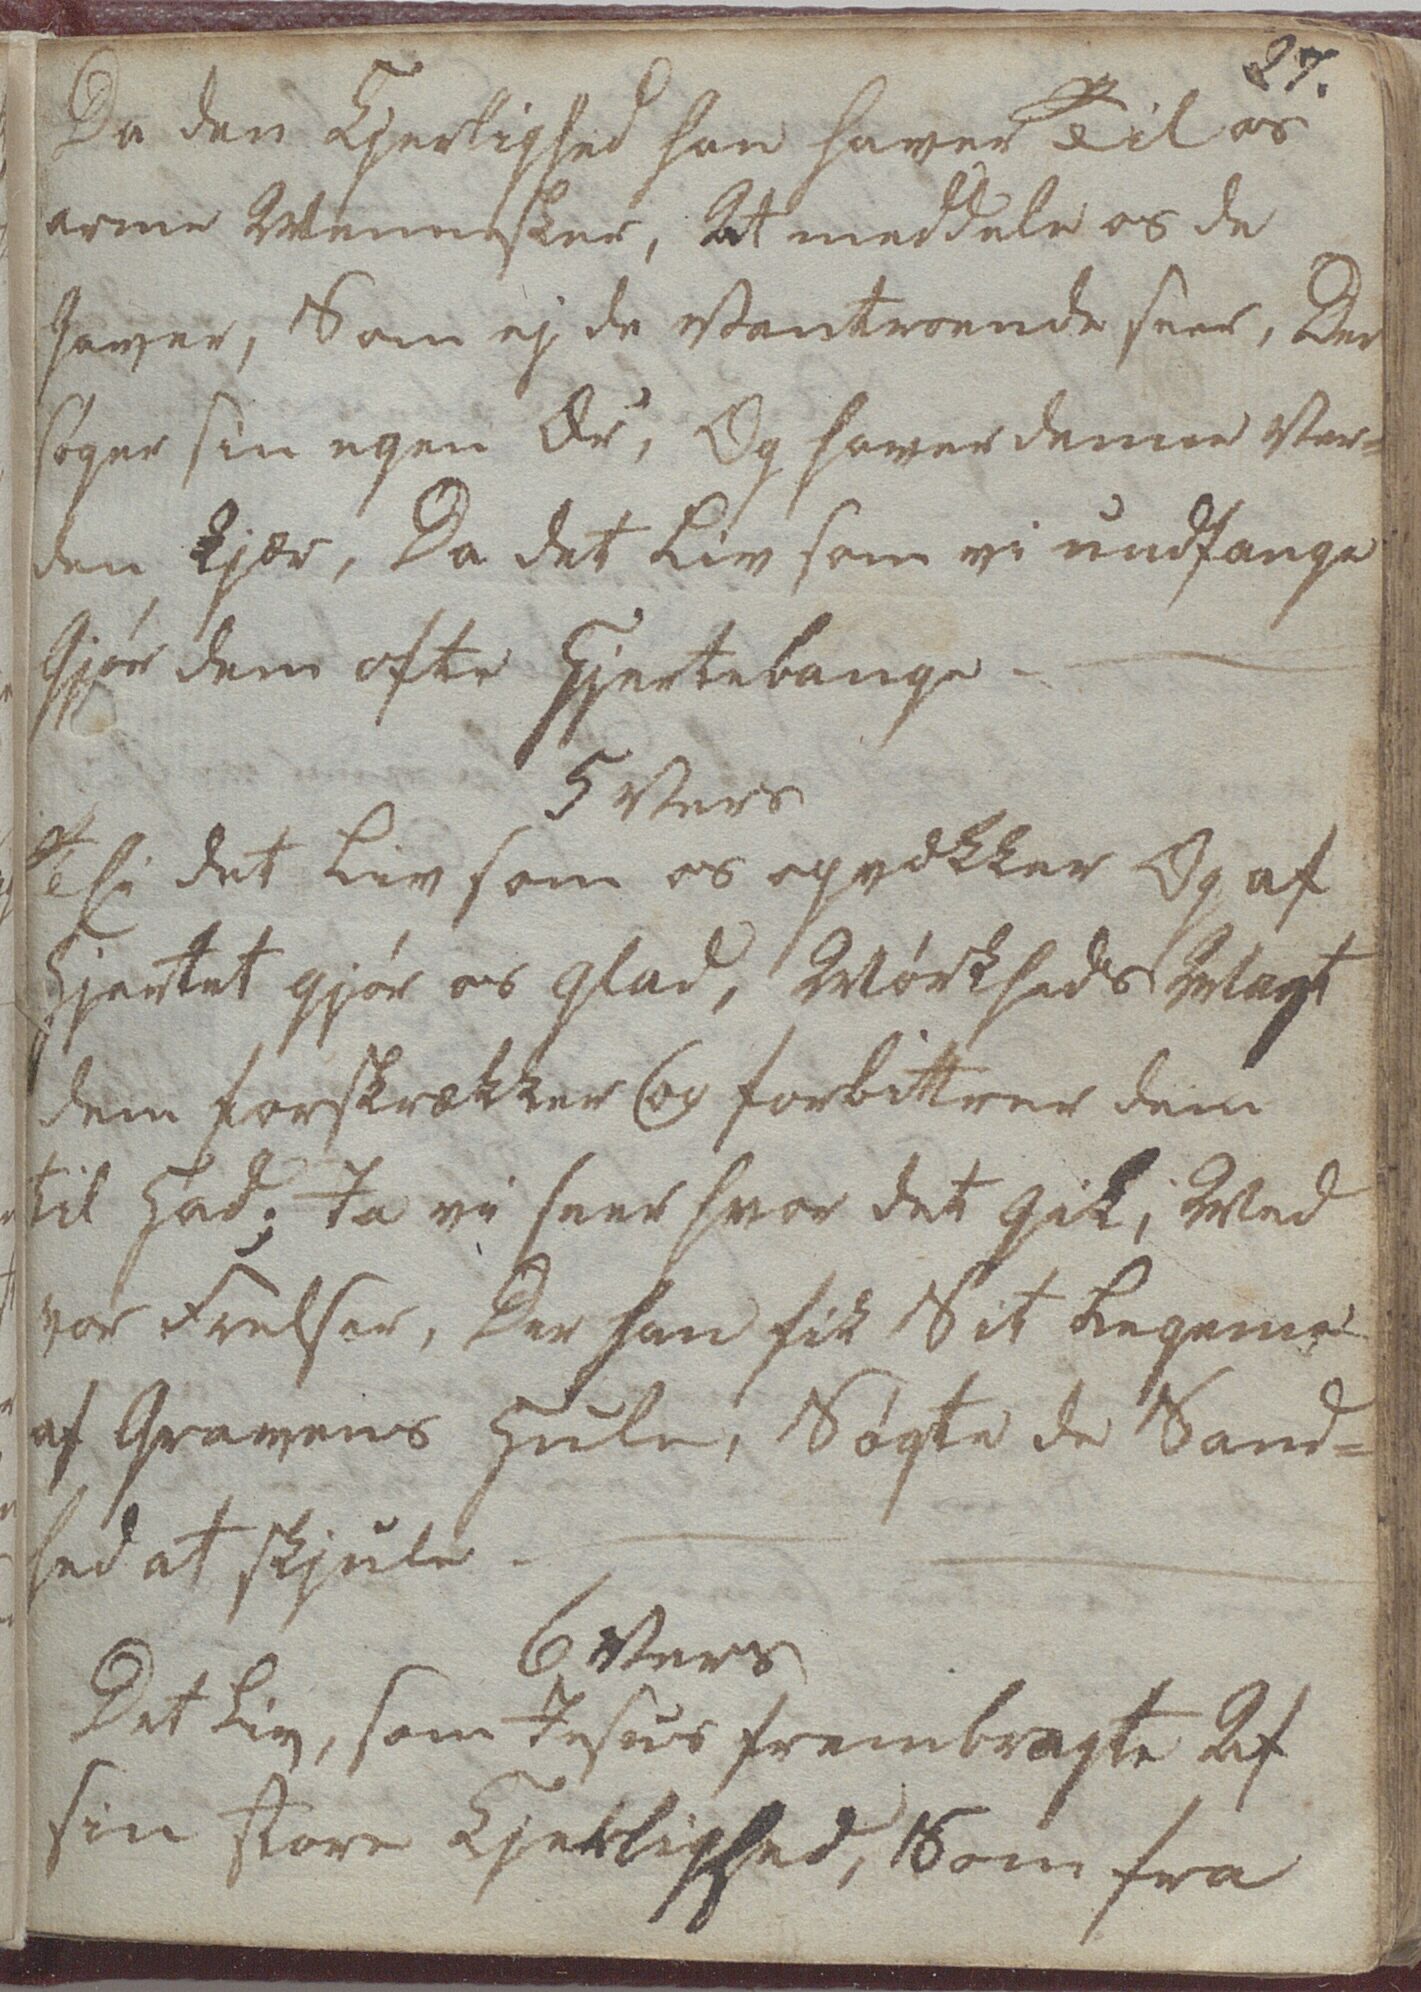 27.
Da den Kjerlighed han haver Til os
arme Mennesker, At meddele os de
Gaver, Som ej de Vantroende seer, Der
søger sin egen Ær, Og haver denne Ver=
den kjær, Da det Liv som vi undfange
Gjør dem ofte Hjertebange -
5 Vers
Thi det Liv som os opvækker Og af
Hjertet gjør os glad, Mørkheds Magt
dem forskrækker Og forbittrer dem
til Had; Ja vi seer hvor det gik, Med
vor Frelser, Der han fik Sit Legeme
af Gravens Hule, Søgte de Sand=
hed at skjule -
6 Vers
Det Liv, som Jesus frembragte Af
sin store Kjerlighed, Som fra